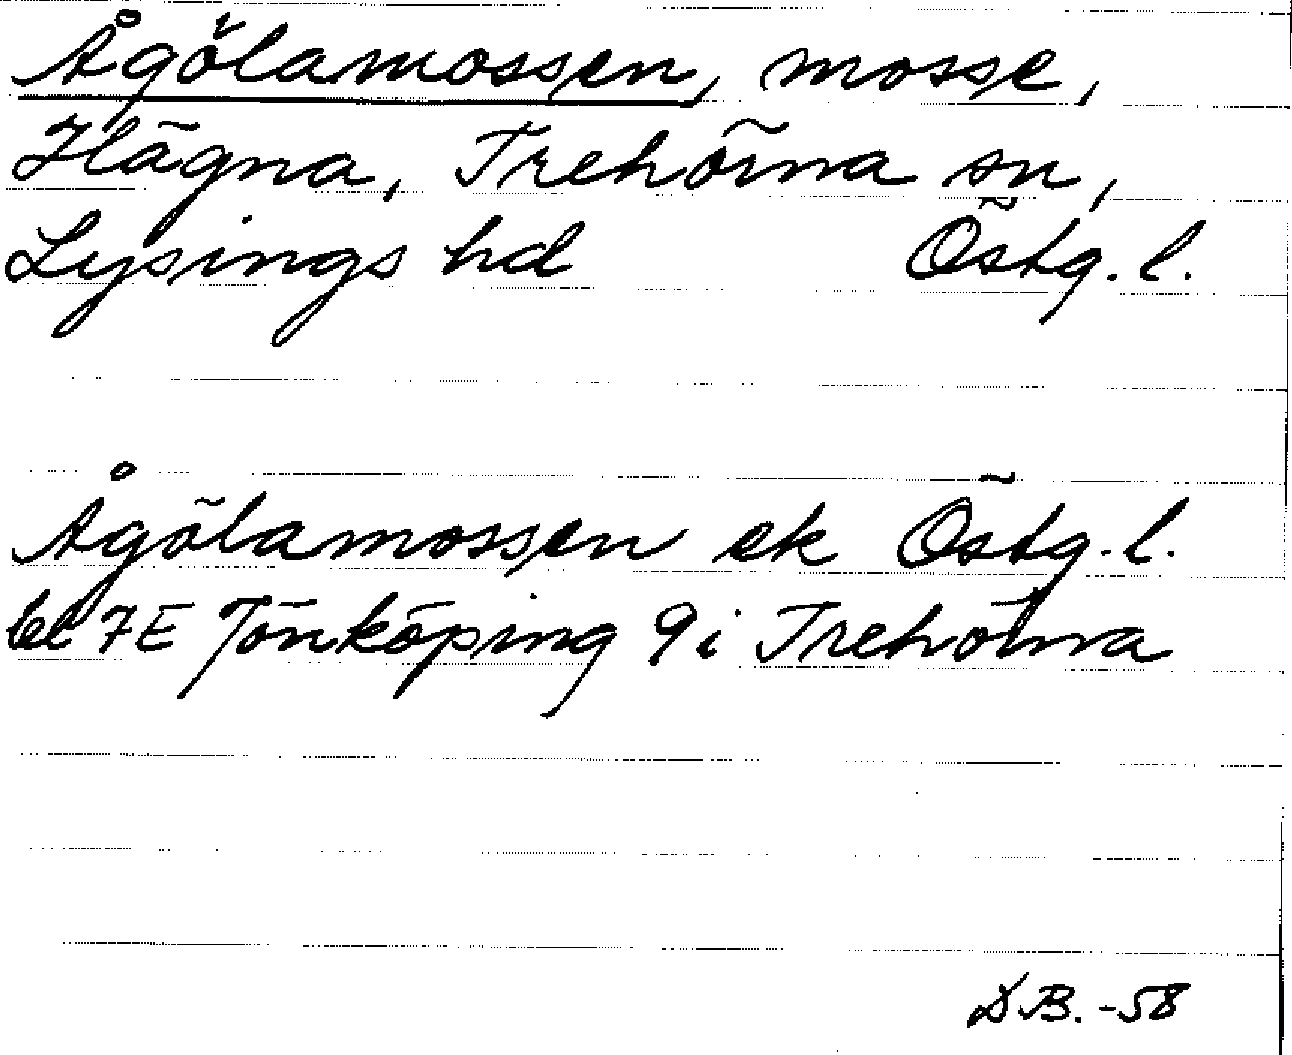 Ågölamossen, mosse,
Hägna, Trehörna sn,
Lysings hd Östg. l.
Ågölamossen ek Östg. l.
bl 7E Jönköping 9i Trehörna
D.B. -58